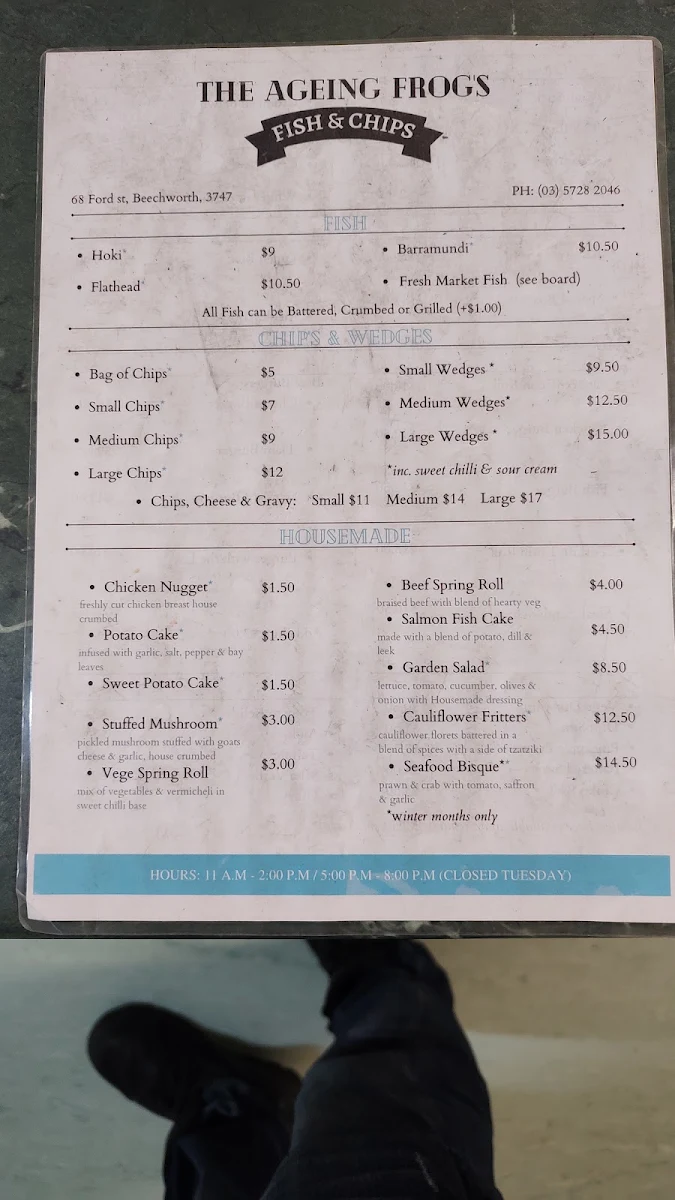 THE AGEING FROG'S
FISH & CHIPS
68 Ford st, Beechworth, 3747
PH: (03) 5728 2046
FISH
• Hoki* $9
• Barramundi* $10.50
• Flathead* $10.50
• Fresh Market Fish (see board)
All Fish can be Battered, Crumbed or Grilled (+$1.00)
CHIP'S & WEDGES
• Bag of Chips* $5
• Small Wedges * $9.50
• Small Chips* $7
• Medium Wedges* $12.50
• Medium Chips* $9
• Large Wedges * $15.00
• Large Chips* $12
*inc. sweet chilli & sour cream
• Chips, Cheese & Gravy: Small $11 Medium $14 Large $17
HOUSEMADE
• Chicken Nugget* $1.50
freshly cut chicken breast house
crumbed
• Potato Cake* $1.50
infused with garlic, salt, pepper & bay
leaves
• Sweet Potato Cake* $1.50
• Stuffed Mushroom* $3.00
pickled mushroom stuffed with goats
cheese & garlic, house crumbed
• Vege Spring Roll $3.00
mix of vegetables & vermicheli in
sweet chilli base
• Beef Spring Roll $4.00
braised beef with blend of hearty veg
• Salmon Fish Cake $4.50
made with a blend of potato, dill &
leek
• Garden Salad* $8.50
lettuce, tomato, cucumber, olives &
onion with Housemade dressing
• Cauliflower Fritters* $12.50
cauliflower florets battered in a
blend of spices with a side of tzatziki
• Seafood Bisque** $14.50
prawn & crab with tomato, saffron
& garlic
*winter months only
HOURS: 11 A.M - 2:00 P.M / 5:00 P.M - 8:00 P.M (CLOSED TUESDAY)